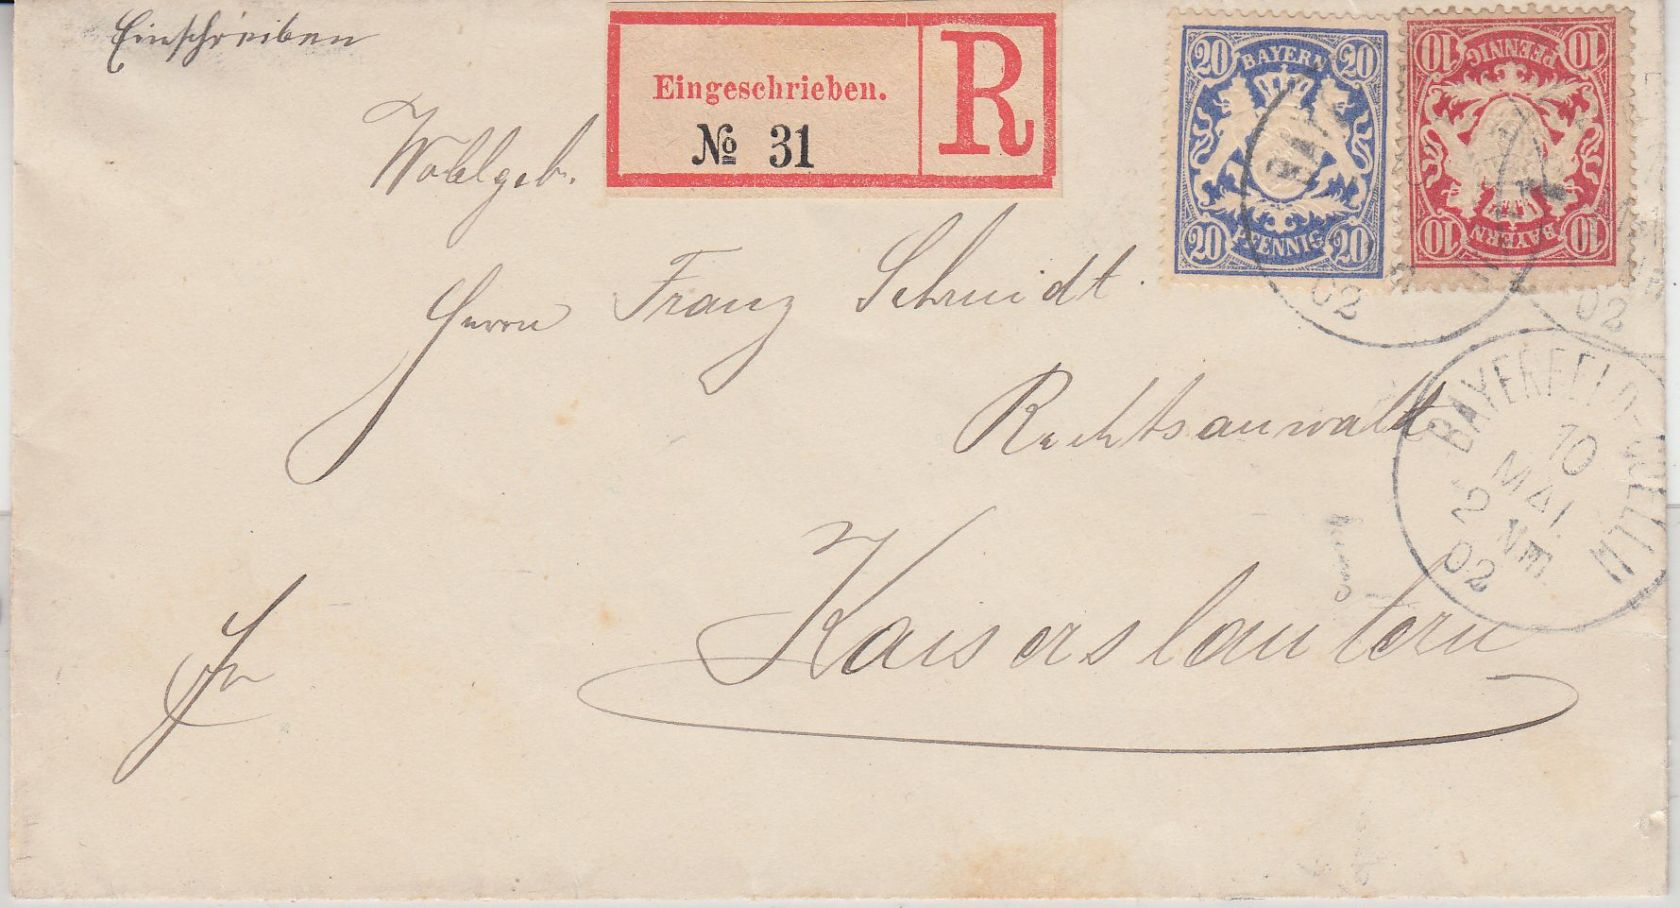 Einschreiben
Eingeschrieben.
№ 31
R
20 BAYERN 20
20 PFENNIG 20
10 PFENNIG 10
10 BAYERN 10
BAYE
02
02
Wohlgeb.
Herrn Franz Schmidt.
Rechtsanwalt
BAYERFELD-CÖLLN
10
MAI.
2 NM.
02
Kaiserslautern